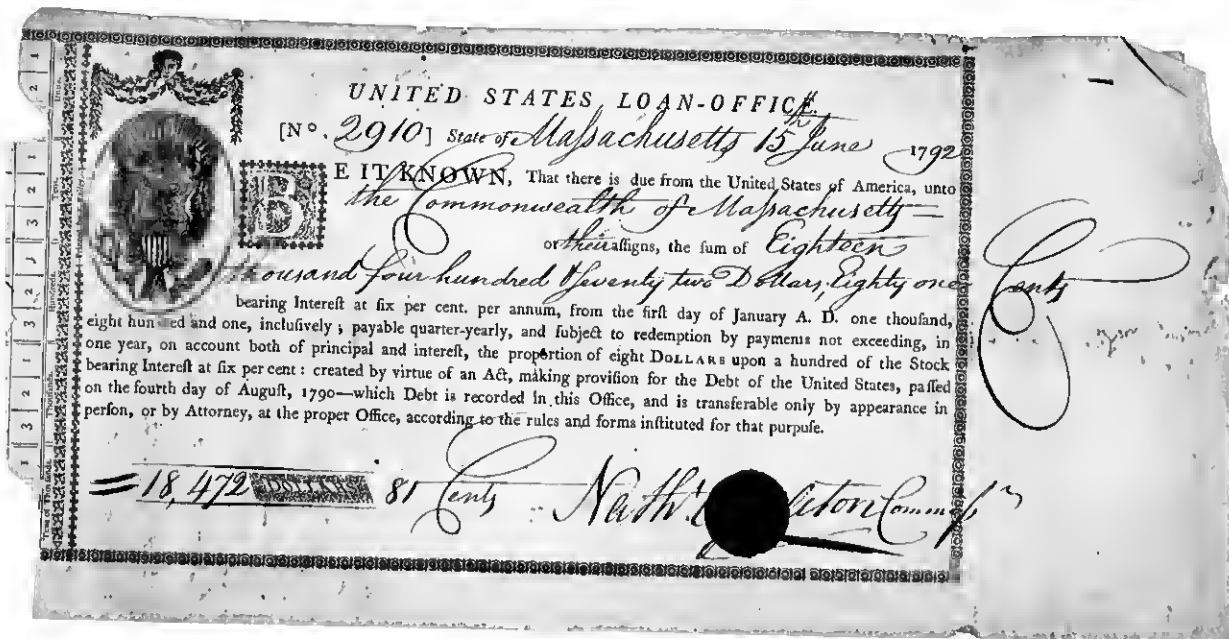 UNITED STATES LOAN-OFFICE.
[No. 2910] State of Massachusetts 15th June 1792
BE IT KNOWN, That there is due from the United States of America, unto
the Commonwealth of Massachusetts
or their assigns, the sum of Eighteen
thousand four hundred & seventy two Dollars, Eighty one Cents
bearing Interest at six per cent. per annum, from the first day of January A. D. one thousand,
eight hundred and one, inclusively ; payable quarter-yearly, and subject to redemption by payments not exceeding, in
one year, on account both of principal and interest, the proportion of eight DOLLARS upon a hundred of the Stock
bearing Interest at six per cent : created by virtue of an Act, making provision for the Debt of the United States, passed
on the fourth day of August, 1790—which Debt is recorded in this Office, and is transferable only by appearance in
person, or by Attorney, at the proper Office, according to the rules and forms instituted for that purpuse.
18,472 DOLLARS 81 Cents
Nath.l